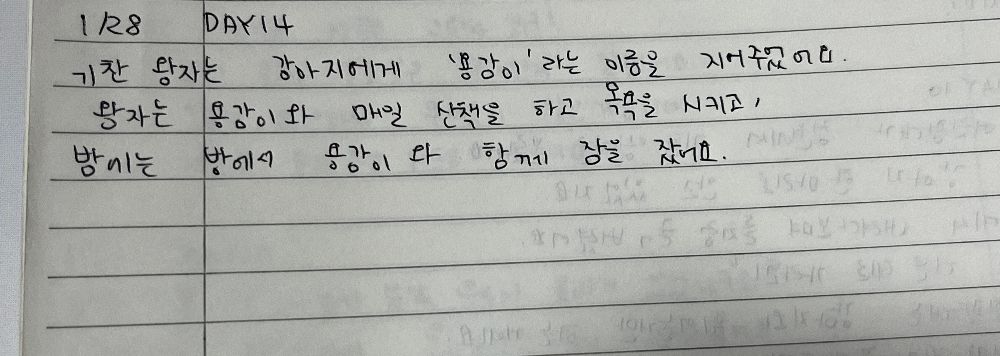 1/28 DAY14
기찬 왕자는 강아지에게 '용감이'라는 이름을 지어주었어요.
왕자는 용감이와 매일 산책을 하고 목욕을 시키고,
밤에는 방에서 용감이와 함께 잠을 잤어요.